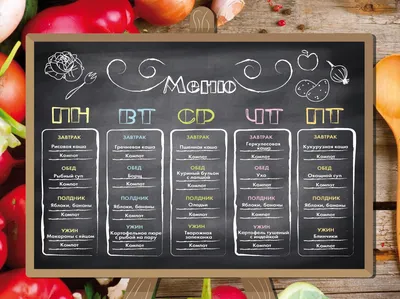 Меню
ПН ВТ СР ЧТ ПТ
ЗАВТРАК
Рисовая каша
Компот
ОБЕД
Рыбный суп
Компот
ПОЛДНИК
Яблоки, бананы
Компот
УЖИН
Макароны с яйцом
Компот
ЗАВТРАК
Гречневая каша
Компот
ОБЕД
Борщ
Компот
ПОЛДНИК
Яблоки, бананы
Компот
УЖИН
Картофельное пюре
с рыбой на пару
Компот
ЗАВТРАК
Пшенная каша
Компот
ОБЕД
Куриный бульон
с лапшой
Компот
ПОЛДНИК
Оладьи
Компот
УЖИН
Творожная
запеканка
Компот
ЗАВТРАК
Геркулесовая
каша
Компот
ОБЕД
Уха
Компот
ПОЛДНИК
Яблоки, бананы
Компот
УЖИН
Картофель тушеный
с индейкой
Компот
ЗАВТРАК
Кукурузная каша
Компот
ОБЕД
Овощной суп
Компот
ПОЛДНИК
Яблоки, бананы
Компот
УЖИН
Блинчики
Компот